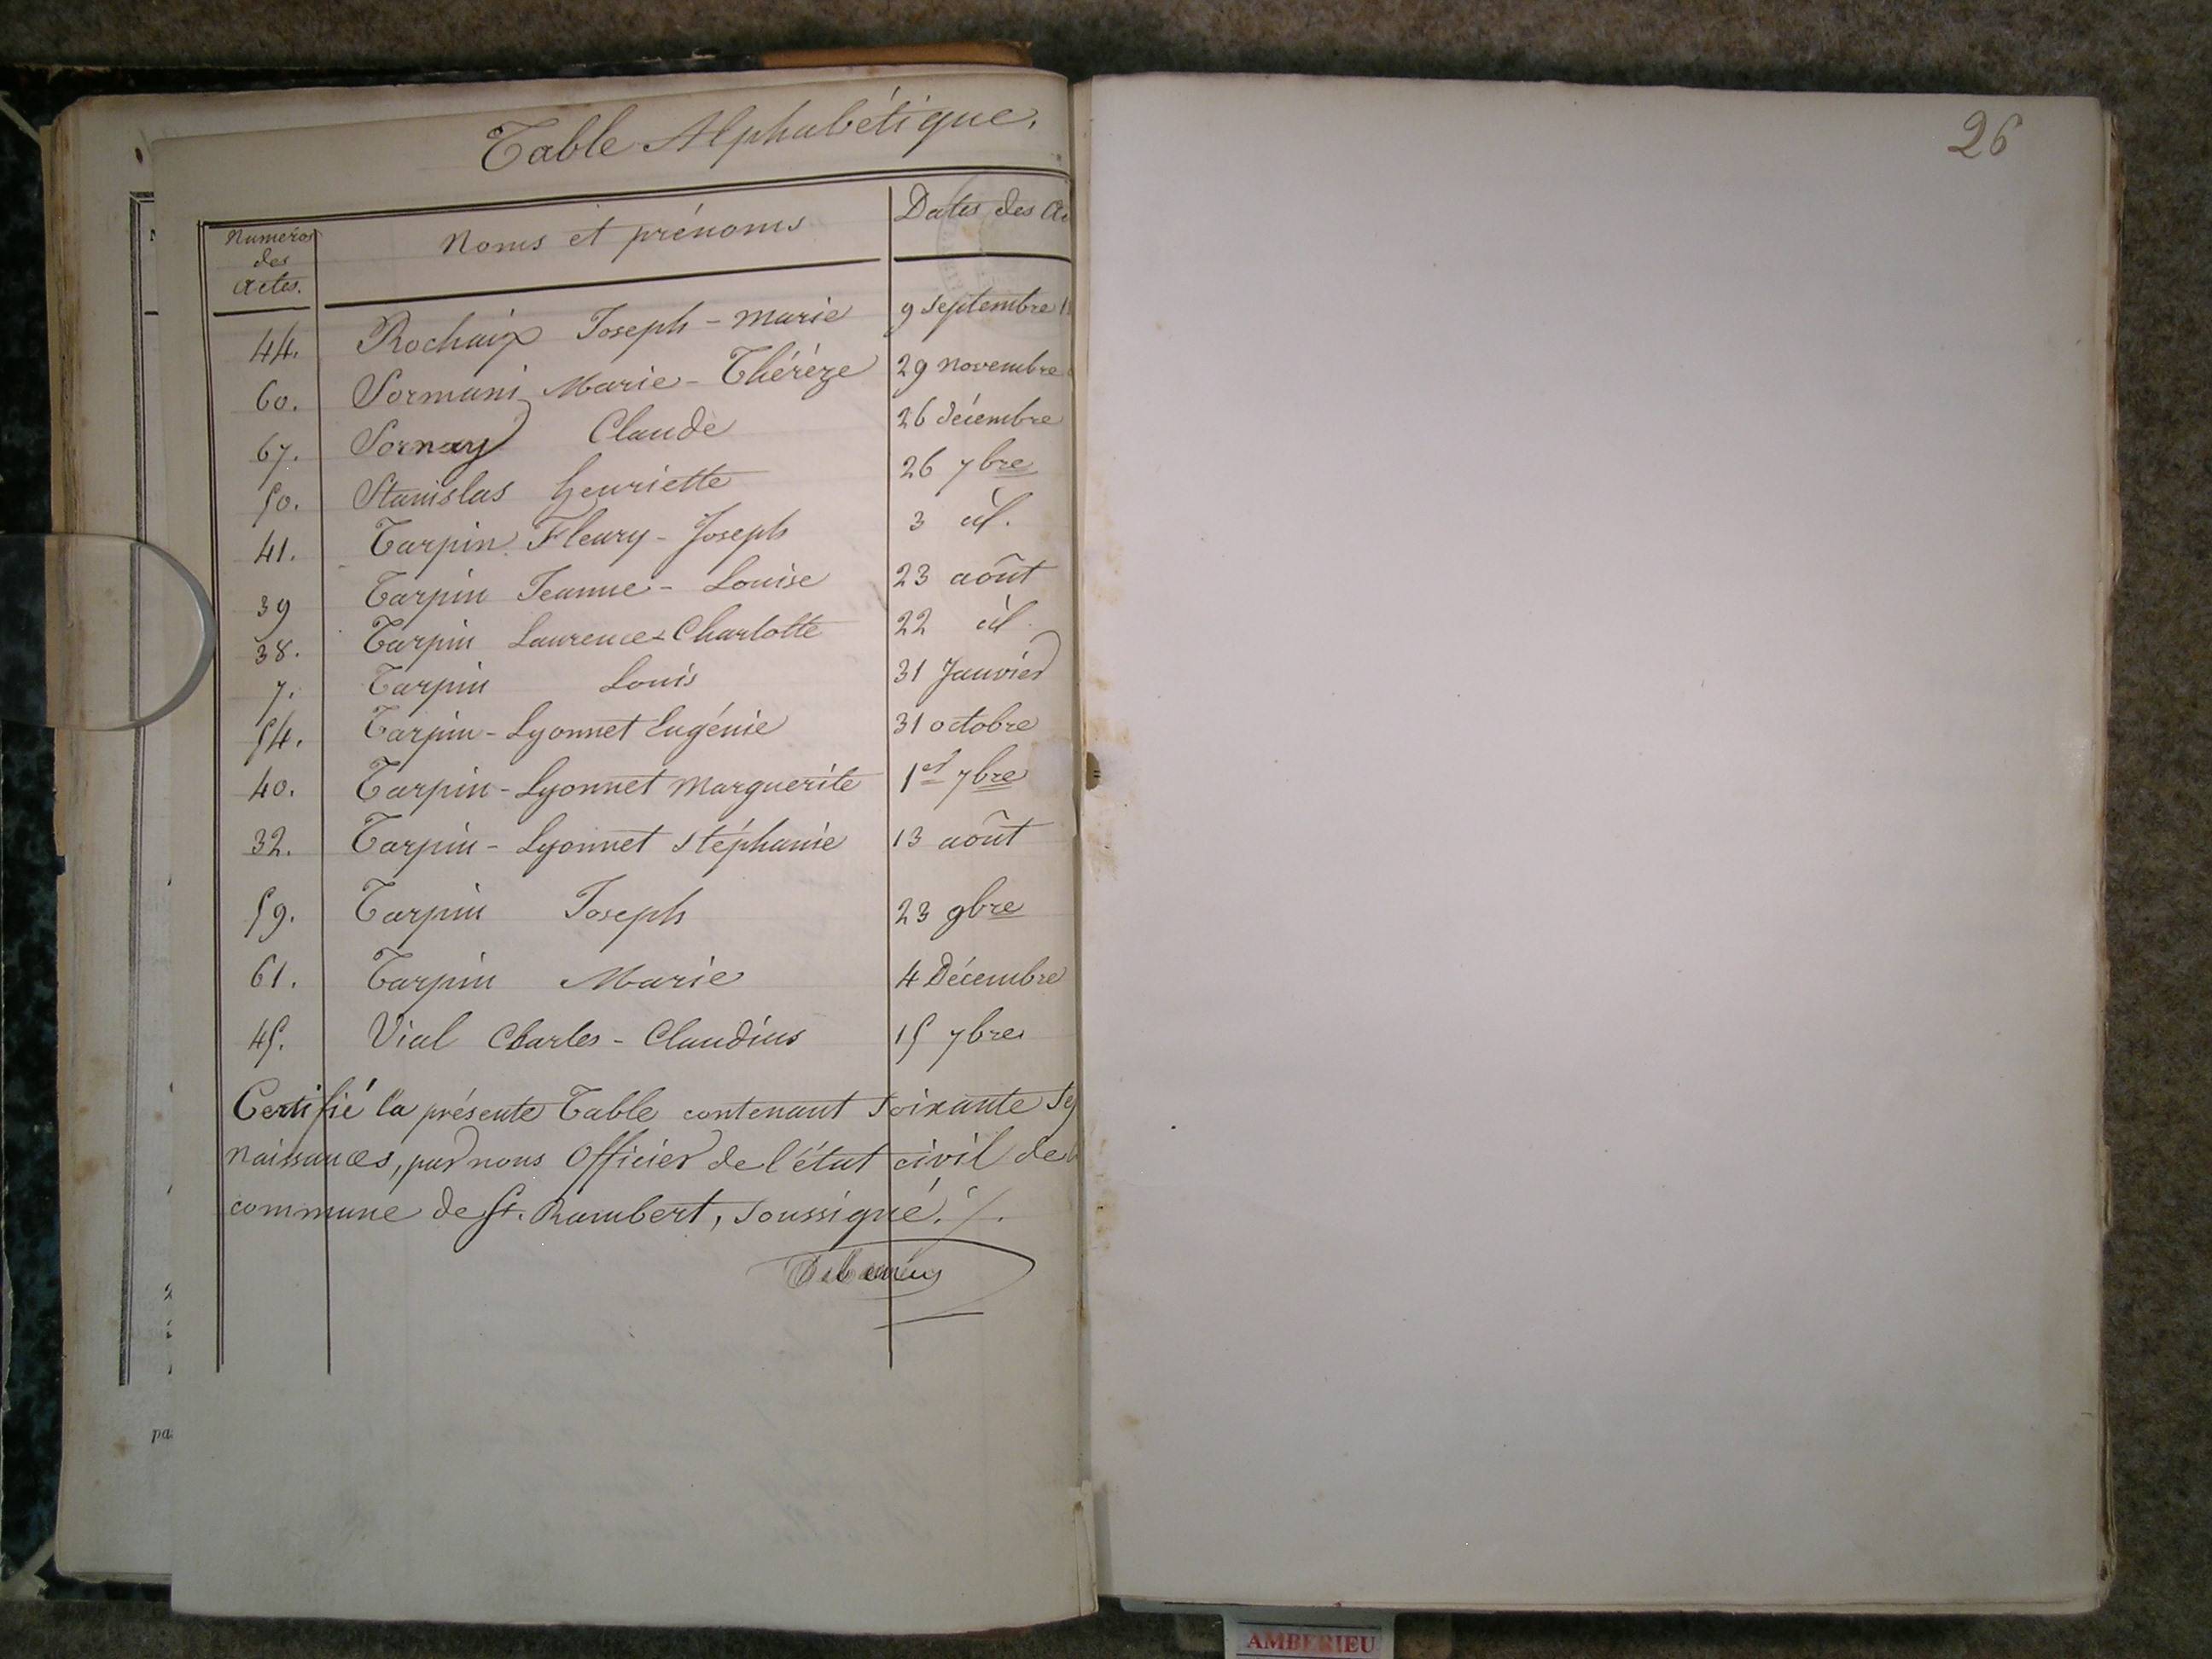 Table Alphabétique.
Numéros des Actes. Noms et prénoms Dates des Ac
44. Rochaix Joseph - Marie 9 Septembre 1
60. Sormani Marie - Thérèze 29 Novembre
67. Sornay Claude 26 décembre
50. Stanislas henriette 26 7bre
41. Tarpin Fleury - Joseph 3 id.
39 Tarpin Jeanne - Louise 23 août
38. Tarpin Laurence - Charlotte 22 id.
7. Tarpin Louis 31 Janvier
54. Tarpin - Lyonnet Eugénie 31 octobre
40. Tarpin - Lyonnet Marguerite 1er 7bre
32. Tarpin - Lyonnet Stéphanie 13 août
59. Tarpin Joseph 23 9bre
61. Tarpin Marie 4 Décembre
45. Vial Charles - Claudius 15 7bre
Certifié la présente Table contenant Soixante Se
naissances, par nous Officier de l'état civil de
commune de St. Rambert, Soussigné. /.
26
pa
AMBERIEU